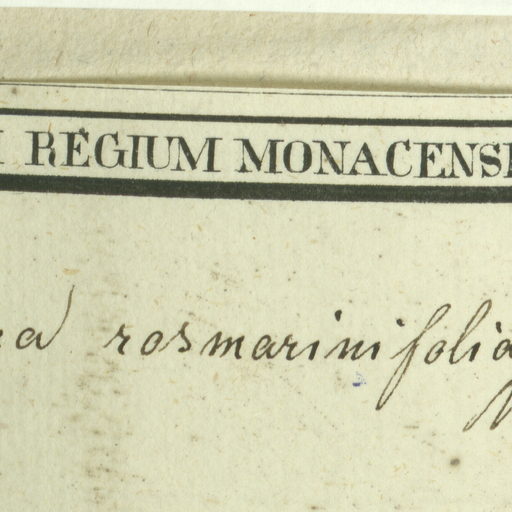 REGIUM MONACENS
rosmarinifolia